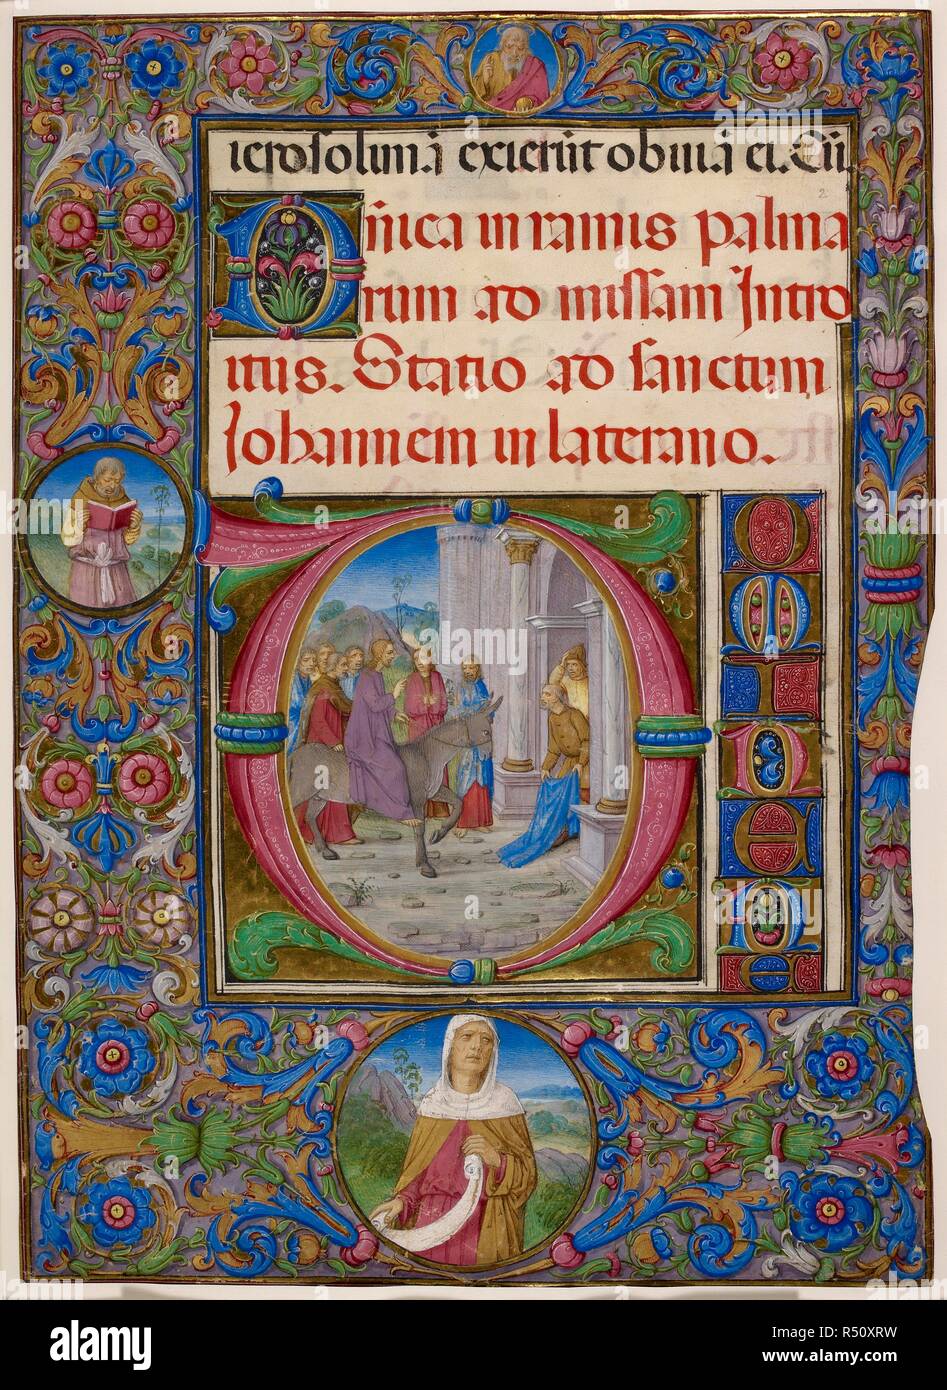 ierosolimā exierūt obuiā ei. Cū
Dñica in ramis palma
rum ad missam Introi
itus. Statio ad sanctum
Johannem in laterano.
DOMINE
NE
alamy
Image ID: R50XRW
www.alamy.com